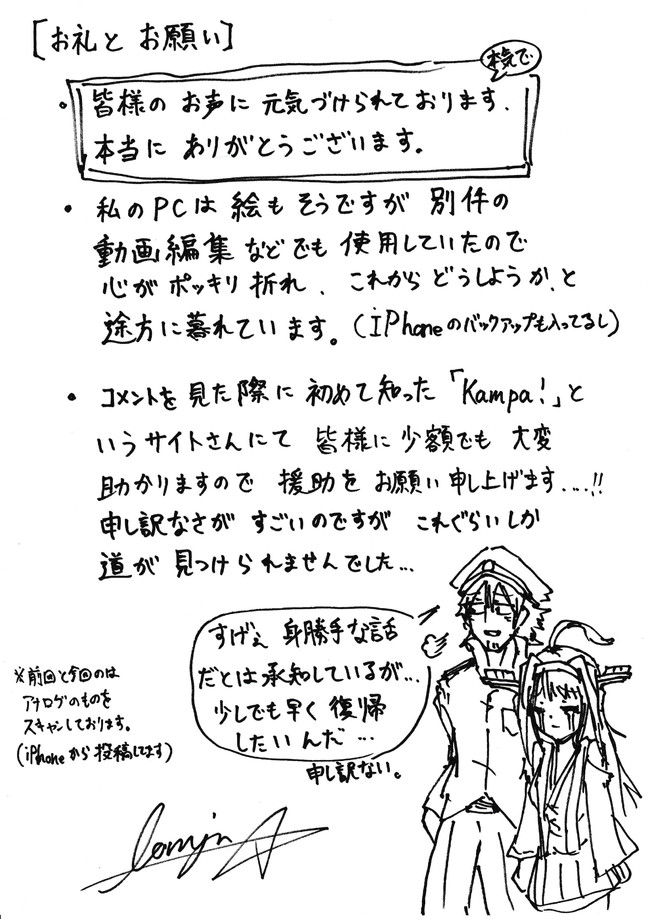 [お礼と お願い]
本気で
・皆様の お声に 元気づけられております.
本当に ありがとうございます。
・私のPCは 絵も そうですが 別件の
動画編集 などでも 使用していたので
心が ポッキリ 折れ、これから どうしようか、と
途方に暮れています。(iPhoneのバックアップも入ってるし)
・コメントを 見た際に 初めて知った「Kampa!」と
いうサイトさんにて 皆様に 少額でも 大変
助かりますので 援助を お願い申し上げます....!!
申し訳なさが すごいのですが これぐらいしか
道が 見つけられませんでした...
すげぇ 身勝手な話
だとは承知しているが...
少しでも早く 復帰
したいんだ...
申し訳ない。
※前回と今回のは
アナログのものを
スキャンしております。
(iPhoneから投稿してます)